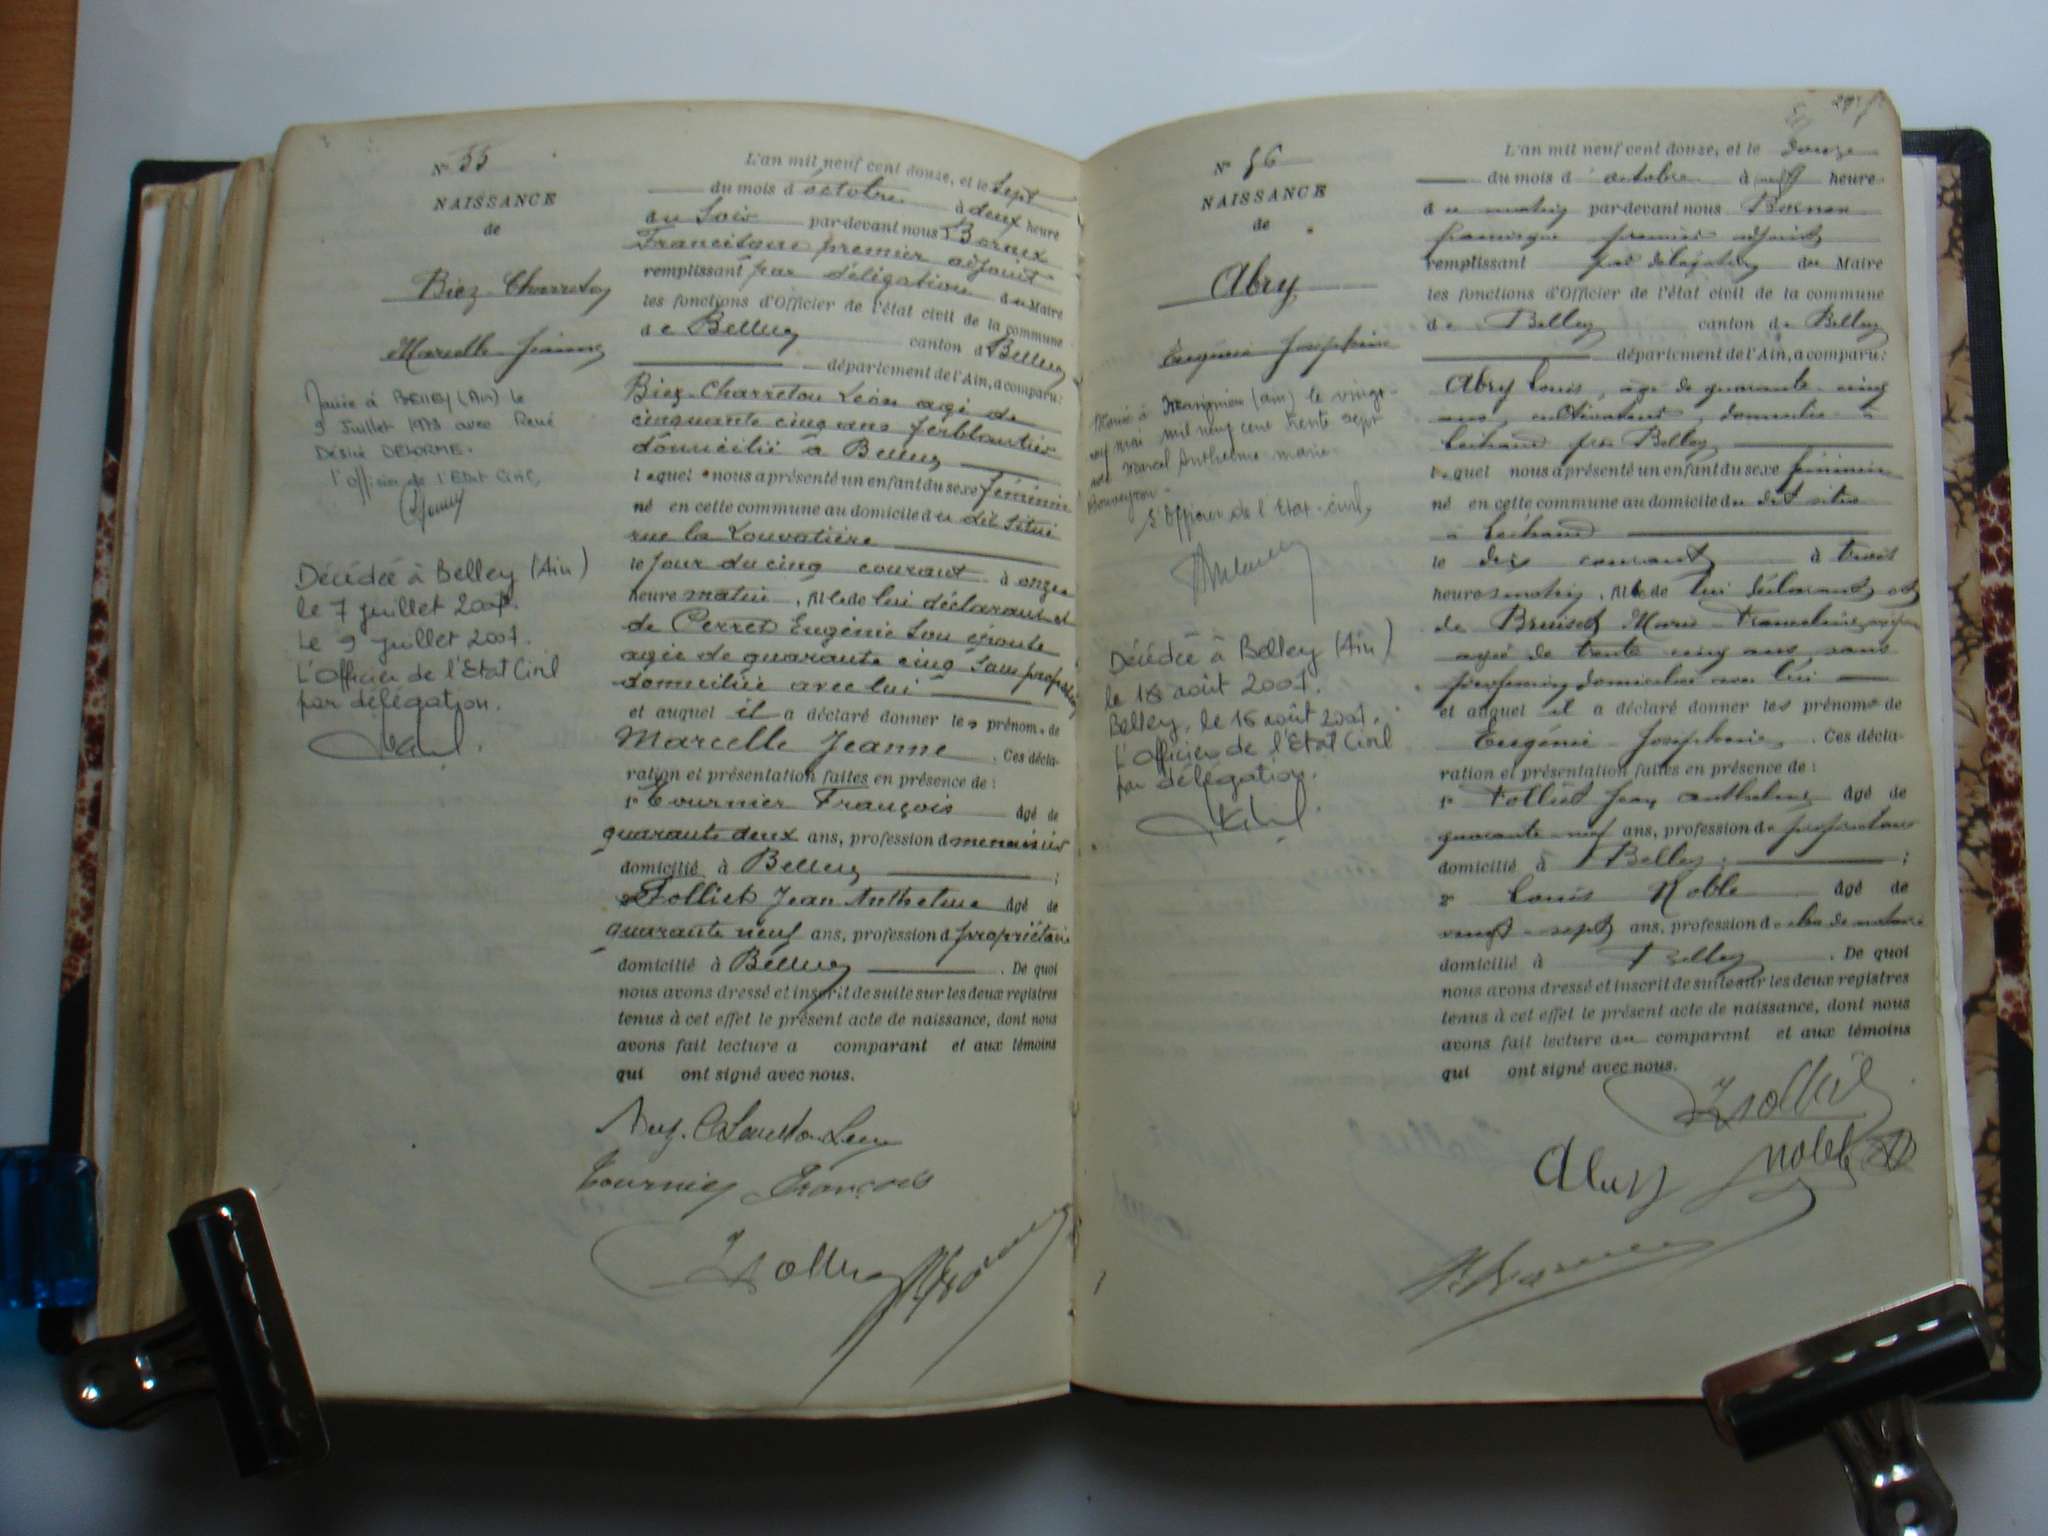 N° 55
NAISSANCE
de
Biez-Charreton
Marcelle Jeanne
Mariée à BELLEY (Ain) le
Juillet 1973 avec René
Désiré DELORME.
l'Officier de l'Etat Civil,
Décédée à Belley (Ain)
le 7 juillet 2001.
Le 9 juillet 2001.
L'Officier de l'Etat Civil
par délégation.
L'an mil neuf cent douze, et le sept
du mois d'octobre à deux heure
du soir par-devant nous
premier adjoint
remplissant par délégation du Maire
les fonctions d'Officier de l'état civil de la commune
de Belley canton de Belley
département de l'Ain, a comparu:
Biez-Charreton Léon agé de
cinquante cinq ans ferblantier
domicilié à Belley
lequel nous a présenté un enfant du sexe féminin
né en cette commune au domicile du dit situé
rue la Louvatière
le jour du cinq courant à onze
heure matin, fille de lui déclarant et
de Perret Eugénie son épouse
agée de quarante cinq sans profession
domiciliée avec lui
et auquel il a déclaré donner les prénoms de
Marcelle Jeanne. Ces décla-
ration et présentation faites en présence de:
1° Tournier François âgé de
quarante deux ans, profession de menuisier
domicilié à Belley;
2° Folliet Jean Anthelme âgé de
quarante neuf ans, profession d propriétaire
domicilié à Belley. De quoi
nous avons dressé et inscrit de suite sur les deux registres
tenus à cet effet le présent acte de naissance, dont nous
avons fait lecture a comparant et aux témoins
qui ont signé avec nous.
Tournier François
N° 56
NAISSANCE
de
Abry
Eugénie Joséphine
Mariée à (Ain) le vingt-
neuf mai mil neuf cent trente sept
avec Marcel Anthelme Marie
L'Officier de l'Etat-civil,
Décédée à Belley (Ain)
le 18 août 2001.
Belley, le 16 août 2001.
L'Officier de l'Etat Civil
par délégation.
L'an mil neuf cent douze, et le douze
du mois d'octobre à neuf heure
du matin par-devant nous
premier adjoint
remplissant par délégation du Maire
les fonctions d'Officier de l'état civil de la commune
de Belley canton de Belley
département de l'Ain, a comparu:
Abry Louis, âgé de quarante cinq
ans, cultivateur, domicilié à
près Belley
lequel nous a présenté un enfant du sexe féminin
né en cette commune au domicile du dit situé
à
le dix courant à trois
heures matin, fille de lui déclarant et
de Marie
agée de trente cinq ans, sans
profession domiciliée avec lui
et auquel il a déclaré donner les prénoms de
Eugénie Joséphine. Ces décla-
ration et présentation faites en présence de:
1° Folliet Jean Anthelme âgé de
quarante-neuf ans, profession de propriétaire
domicilié à Belley;
2° Louis Noble âgé de
vingt-sept ans, profession de clerc de notaire
domicilié à Belley. De quoi
nous avons dressé et inscrit de suite sur les deux registres
tenus à cet effet le présent acte de naissance, dont nous
avons fait lecture au comparant et aux témoins
qui ont signé avec nous.
Abry